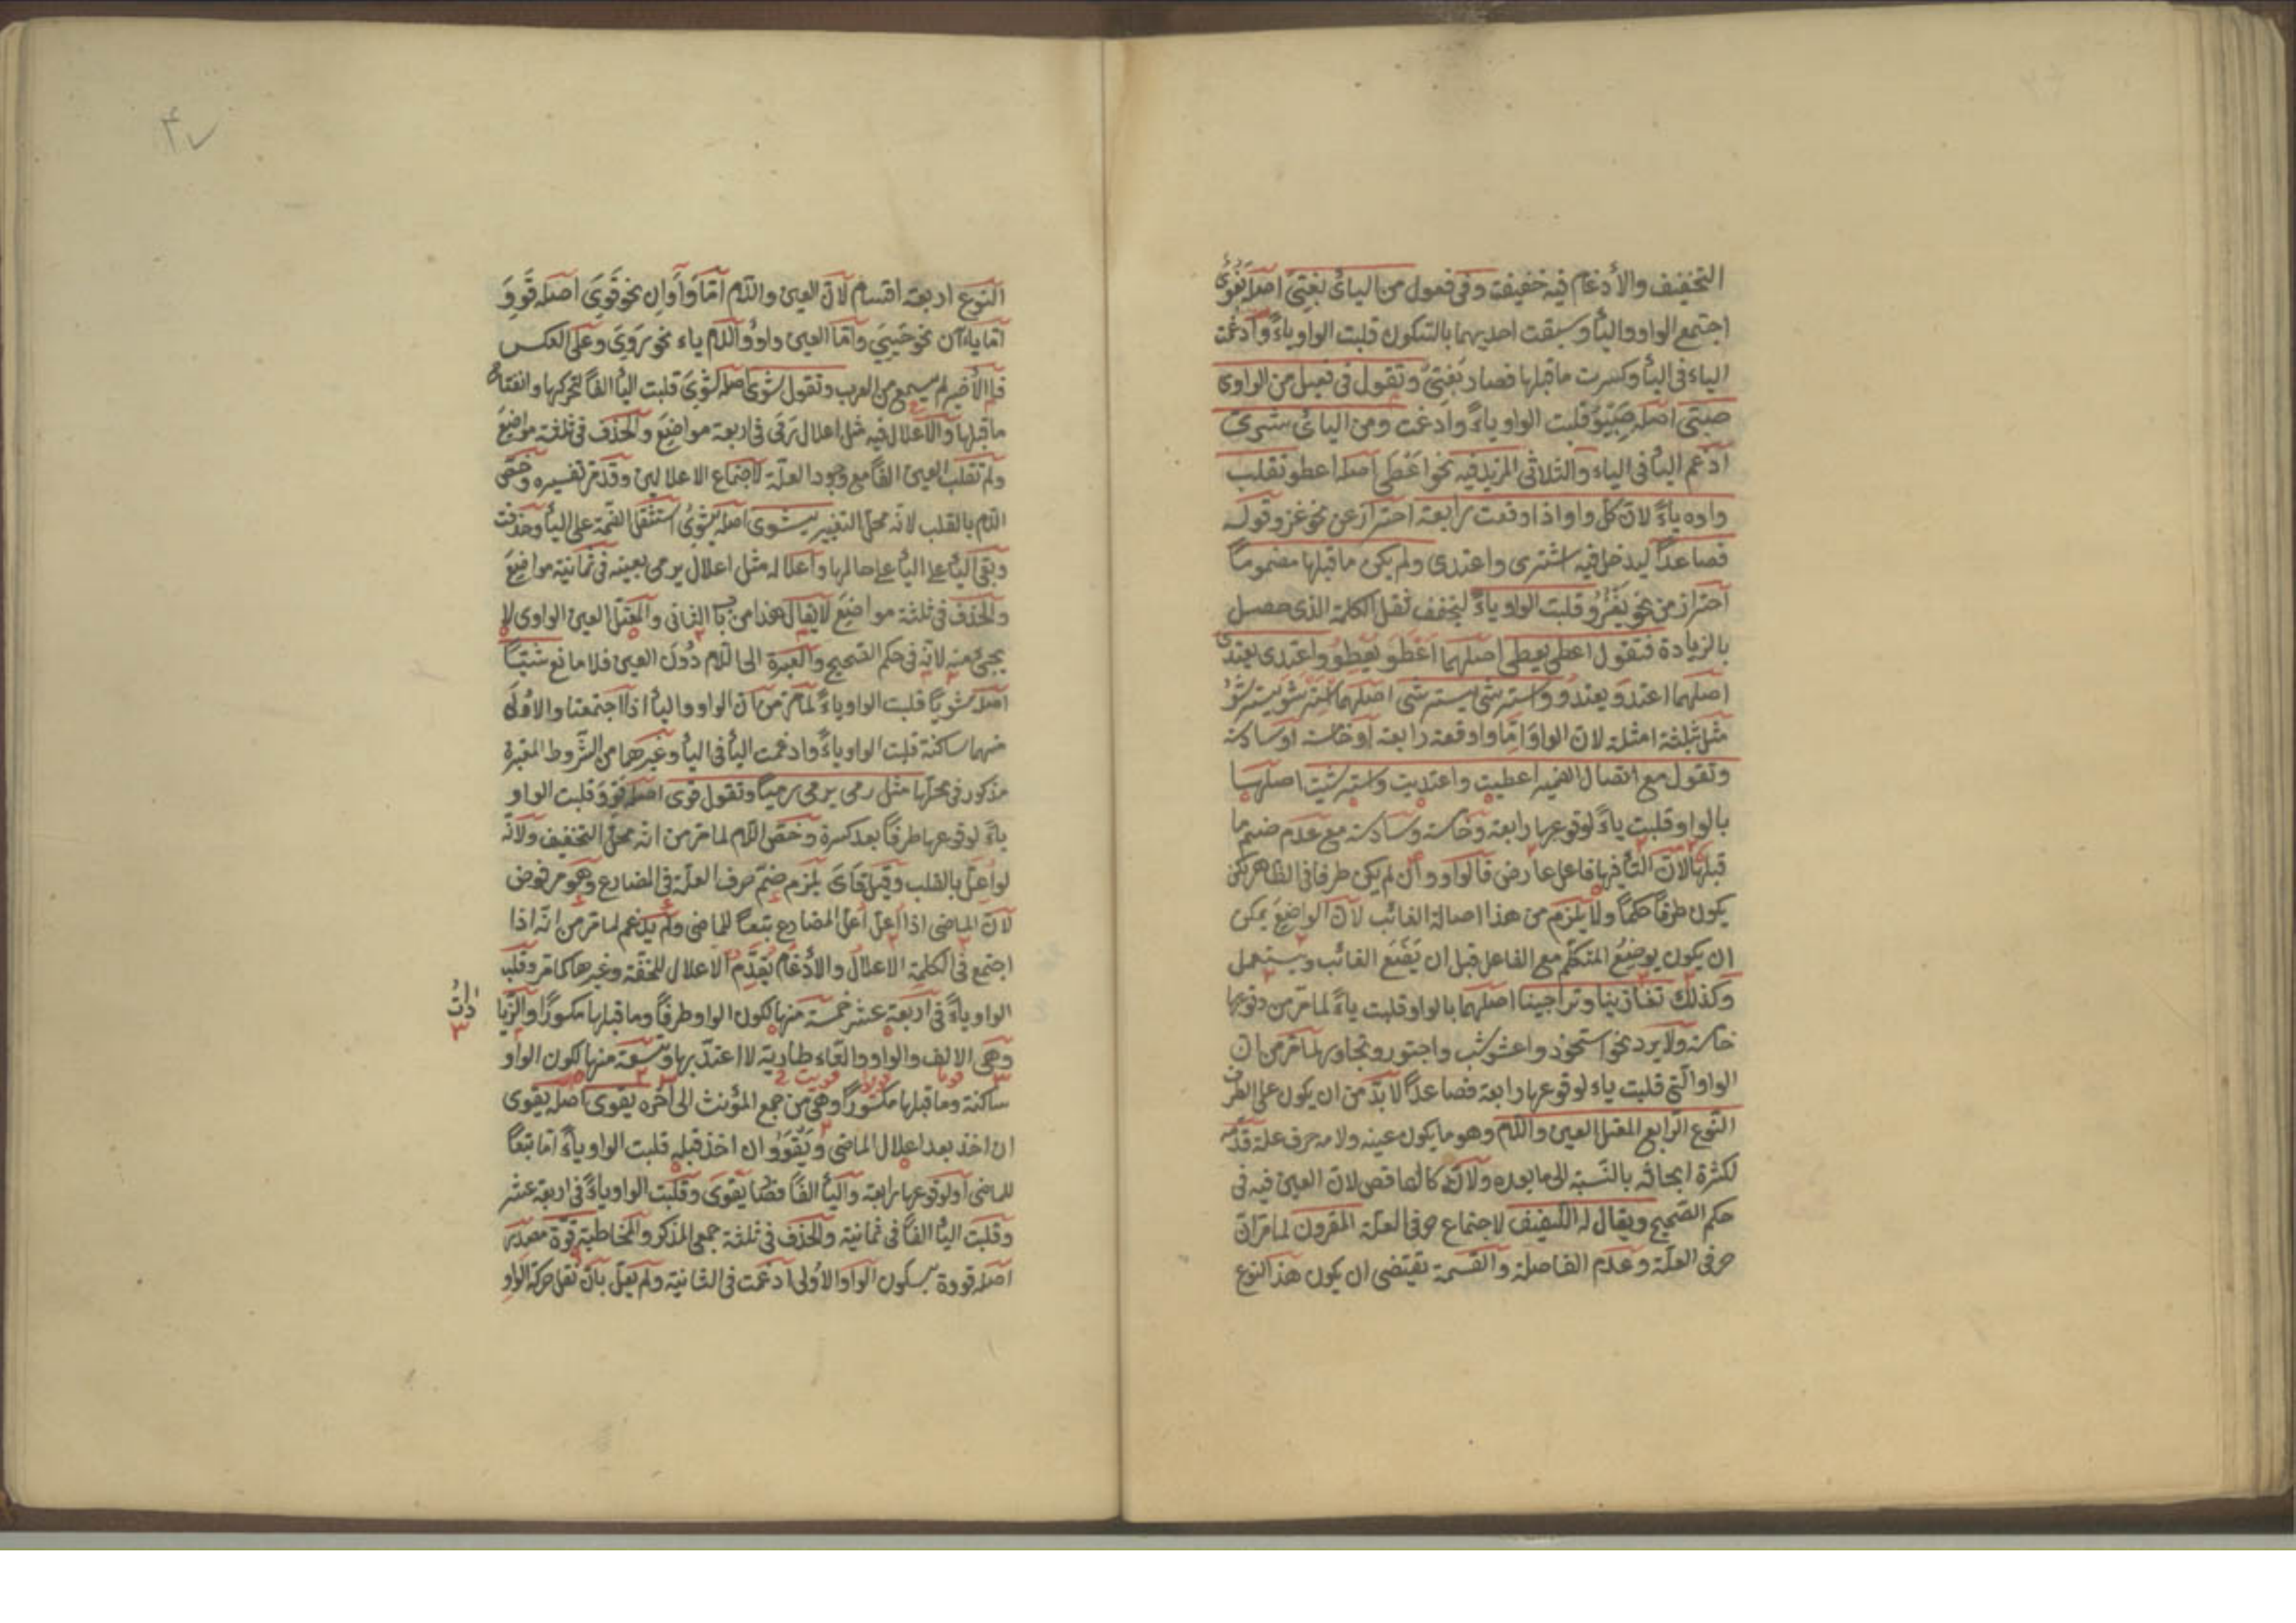 التخفيف والأدغام فيه خفيفة وفى فعول من اليائى بَغىّ اصله بَغُوىٌ
اجتمع الواو واليأ وسبقت احديهما بالسكون قلبت الواو ياءً وادغمت
الياء فى اليأ وكسرت ما قبلها فصار بَغِىّ وتقول فى فعيل من الواوى
صبىّ اصله صَبِيْوٌ قلبت الواو ياءً وادغمت ومن اليائى شرىّ
ادغم اليأ فى الياء والثلاثى المزيد فيه نحو اَعْطَى اصله اعطو تقلب
واوه ياءً لانّ كلّ واو اذا وقعت رابعة احتراز عن نحو غزو وقوله
فصاعدًا ليدخل فيه اشترى واعتدى ولم يكن ما قبلها مضمومًا
احتراز من نحو يَغْزُو قلبت الواو ياءً لتخفف ثقل الكلمة الذى حصل
بالزيادة فتقول اعطى يعطى اصلهما اَعْطَوَ يُعْطِوُ واعتدى يعتدى
اصلهما اعتدو يعتدو واسترشى يسترشى اصلهما استرشو يسترشو
مثل بثلثة امثلة لان الواو امّا واقعة رابعة او خامسة او سادسة
وتقول مع اتصال الضمير اعطيت واعتديت واسترشيت اصلها
بالواو قلبت ياءً لوقوعها رابعة وخامسة وسادسة مع عدم ضم ما
قبلها لانّ التأ فيها فاعل عارض فالواو وان لم يكن طرفا فى الظاهر لكن
يكون طرفًا حكمًا ولا يلزم من هذا اصالة الغائب لانّ الواضع يمكن
ان يكون يوضع المتكلم مع الفاعل قبل ان يَضَعَ الغائب ويستعمل
وكذلك تغازينا وتراجينا اصلهما بالواو قلبت ياءً لما مرّ من وقوعها
خامسة ولا يرد نحو استحوذ واعشوشب واجتور وتجاور لما مرّ من ان
الواو الّتى قلبت ياء لوقوعها رابعة فصاعدًا لا بدّ من ان يكون على الطرف
النّوع الرّابع المعتل العين واللّام وهو ما يكون عينه ولامه حرف علة قدّمه
لكثرة ابحاثه بالنّسبة الى ما بعده ولانّه كالناقص لان العين فيه فى
حكم الصّحيح ويقال له اللّفيف لاجتماع حرفى العلّة المقرون لما مرّ انّ
حرفى العلّة وعدم الفاصلة والقسمة تقتضى ان يكون هذا النوع
النّوع اربعة اقسام لانّ العين واللّام امّا واوانِ نحو قَوِىَ اصله قَوِوَ
امّا ياءآن نحو حَيِىَ وامّا العين واوٌ واللّام ياء نحو رَوِىَ وعلى العكس
فلا الأخير لم يسمع من العرب وتقول شَوَى اصله شَوَىَ قلبت اليأ الفًا لتحركها وانفتاح
ما قبلها والأعلال فيه مثل اعلال رَمَى فى اربعة مواضيع والحذف فى ثلثة مواضيع
ولم تقلب العين الفًا مع وجود العلّة لاجتماع الاعلالين وقد مرّ تفسيره وخصّ
اللّام بالقلب لانّه محلّ التغيير يشوى اصله يَشْوِىُ استثقل الضّمة على اليأ وحذفت
وبقى اليأ على حالها واعلاله مثل اعلال يرمى بعينه فى ثمانية مواضيع
والحذف فى ثلثة مواضيع لا يقال هذا من باب الثانى والمعتلّ العين الواوى لا
يجئ منه لانّه فى حكم الصّحيح والعبرة الى اللّام دُونَ العين فلا مانع شيّا
اصله شويًا قلبت الواو ياءً لما مرّ من ان الواو واليأ اذا اجتمعتا والاولى
منهما ساكنة قلبت الواو ياءً وادغمت اليأ فى اليأ وغيرها من الشّروط المعتبرة
مذكور فى محلّها مثل رمى يرمى رميًا وتقول قَوِى اصله قَوِوَ قلبت الواو
ياءً لوقوعها طرفًا بعد كسرة وخصّ اللّام لما مرّ من انّه محلّ التخفيف ولانّه
لو اُعِلّ بالقلب وقيل قَاىَ يلزم ضمّ حرف العلّة فى المضارع وهو مرفوض
لانّ الماضى اذا اُعلّ اُعلّ المضارع تبعًا للماضى ولم يدغم لما مرّ من انّه اذا
اجتمع فى الكلمة الاعلال والأدغام يُقدّم الاعلال للخفّة وغيرها كما مرّ وقلب
الواو ياءً فى اربعة عشر خمسة منها لكون الواو طرفًا وما قبلها مكسورًا والزّيا
دات
وهى الالف والواو والتّاء طارية لا اعتدّ بها وتسعة منها لكون الواو
ساكنة وما قبلها مكسورًا وهى من جمع المؤنث الى آخره يقوى اصله يَقْوَى
ان اخذ بعد اعلال الماضى ويَقْوَوُ ان اخذ قبله قلبت الواو ياءً امّا تبعًا
للماضى او لوقوعها رابعة واليأ الفًا فصار يَقْوَى وقلبت الواو ياءً فى اربعة عشر
وقلبت اليأ الفًا فى ثمانية والحذف فى ثلثة جمعى المذكر والمخاطبة قوّة مصدر
اصله قووة بسكون الواو الاولى ادغمت فى الثانية ولم يُعَلّ بان نُقل حركة الواو
۴۷